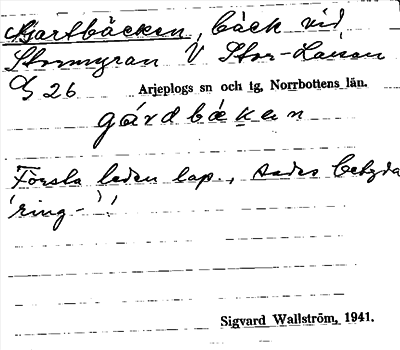 Kjartbäcken, bäck vid
Stormyran V Stor-Laisan
C/S 26 Arjeplogs sn och tg, Norrbottens län.
gárdbäkan
Första leden lap., sades betyda
'ring-'!
Sigvard Wallström, 1941.